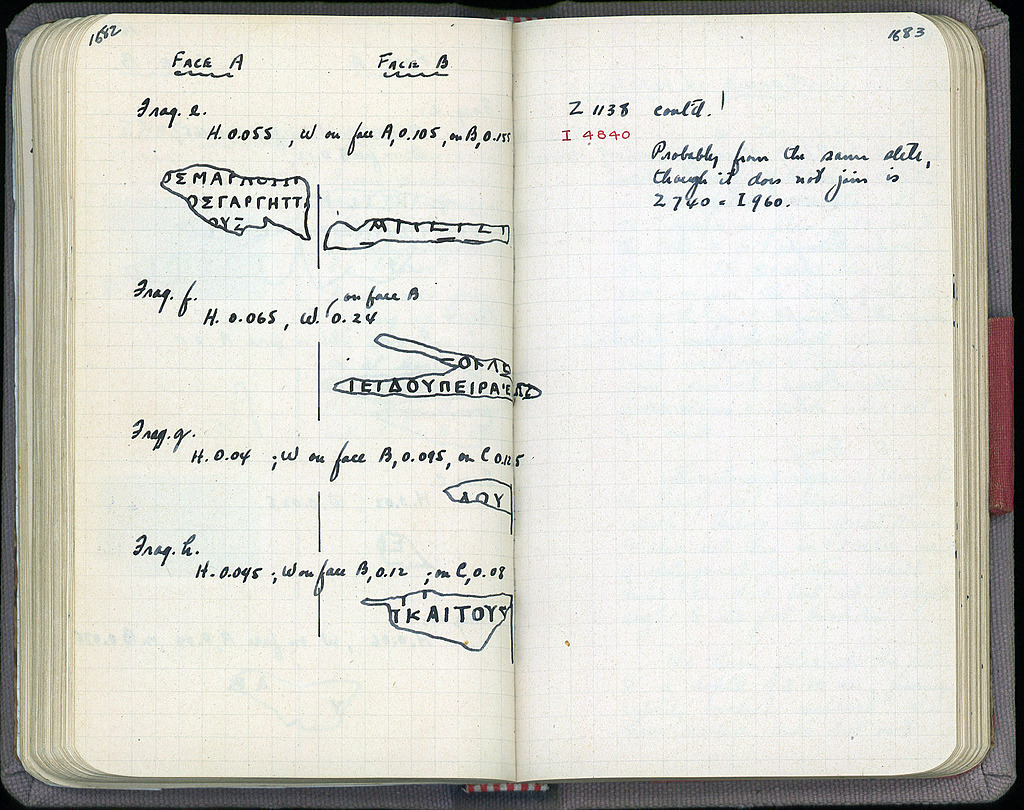 1682
FACE A FACE B
Frag. e.
H. 0.055, W on face A, 0.105, on B, 0.155
ΟΣΓΑΡΓΗΤΤ
ΟΥΞ
Frag. f.
on face B
H. 0.065, W. 0.24
ΙΕΙΔΟΥΠΕΙΡΑΙΕΩΣ
Frag. g.
H. 0.04 ; W on face B, 0.095, on C 0.125
ΔΟΥ
Frag. h.
H. 0.045 ; W on face B, 0.12 ; on C, 0.08
ΤΚΑΙΤΟΥΣ
1683
Z 1138 cont'd.
I 4840
Probably from the same stele,
though it does not join is
Z 740 = I 960.